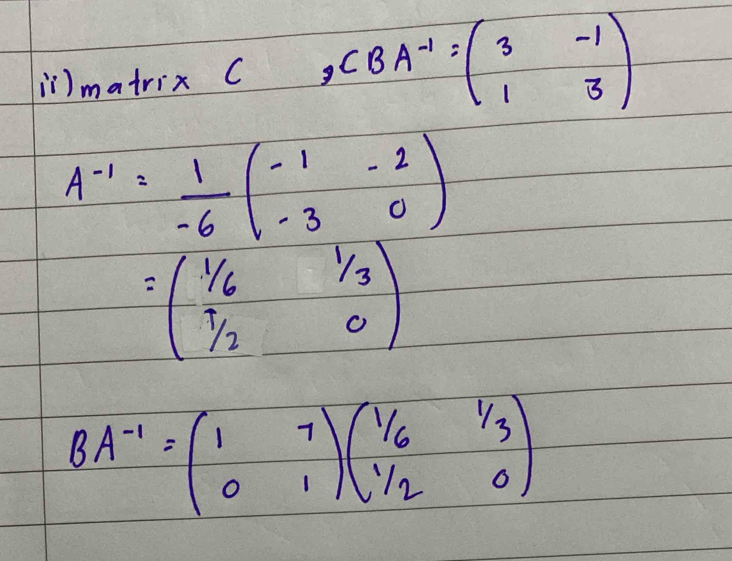 ii) matrix C , CBA⁻¹ = ( 3 -1
1 3 )
A⁻¹ = 1/-6 ( -1 -2
-3 0 )
= ( 1/6 1/3
1/2 0 )
BA⁻¹ = ( 1 7 ) ( 1/6 1/3 )
( 0 1 ) ( 1/2 0 )